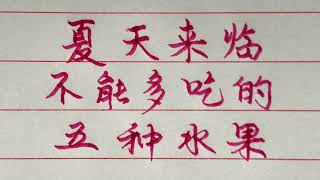 夏天来临
不能多吃的
五种水果